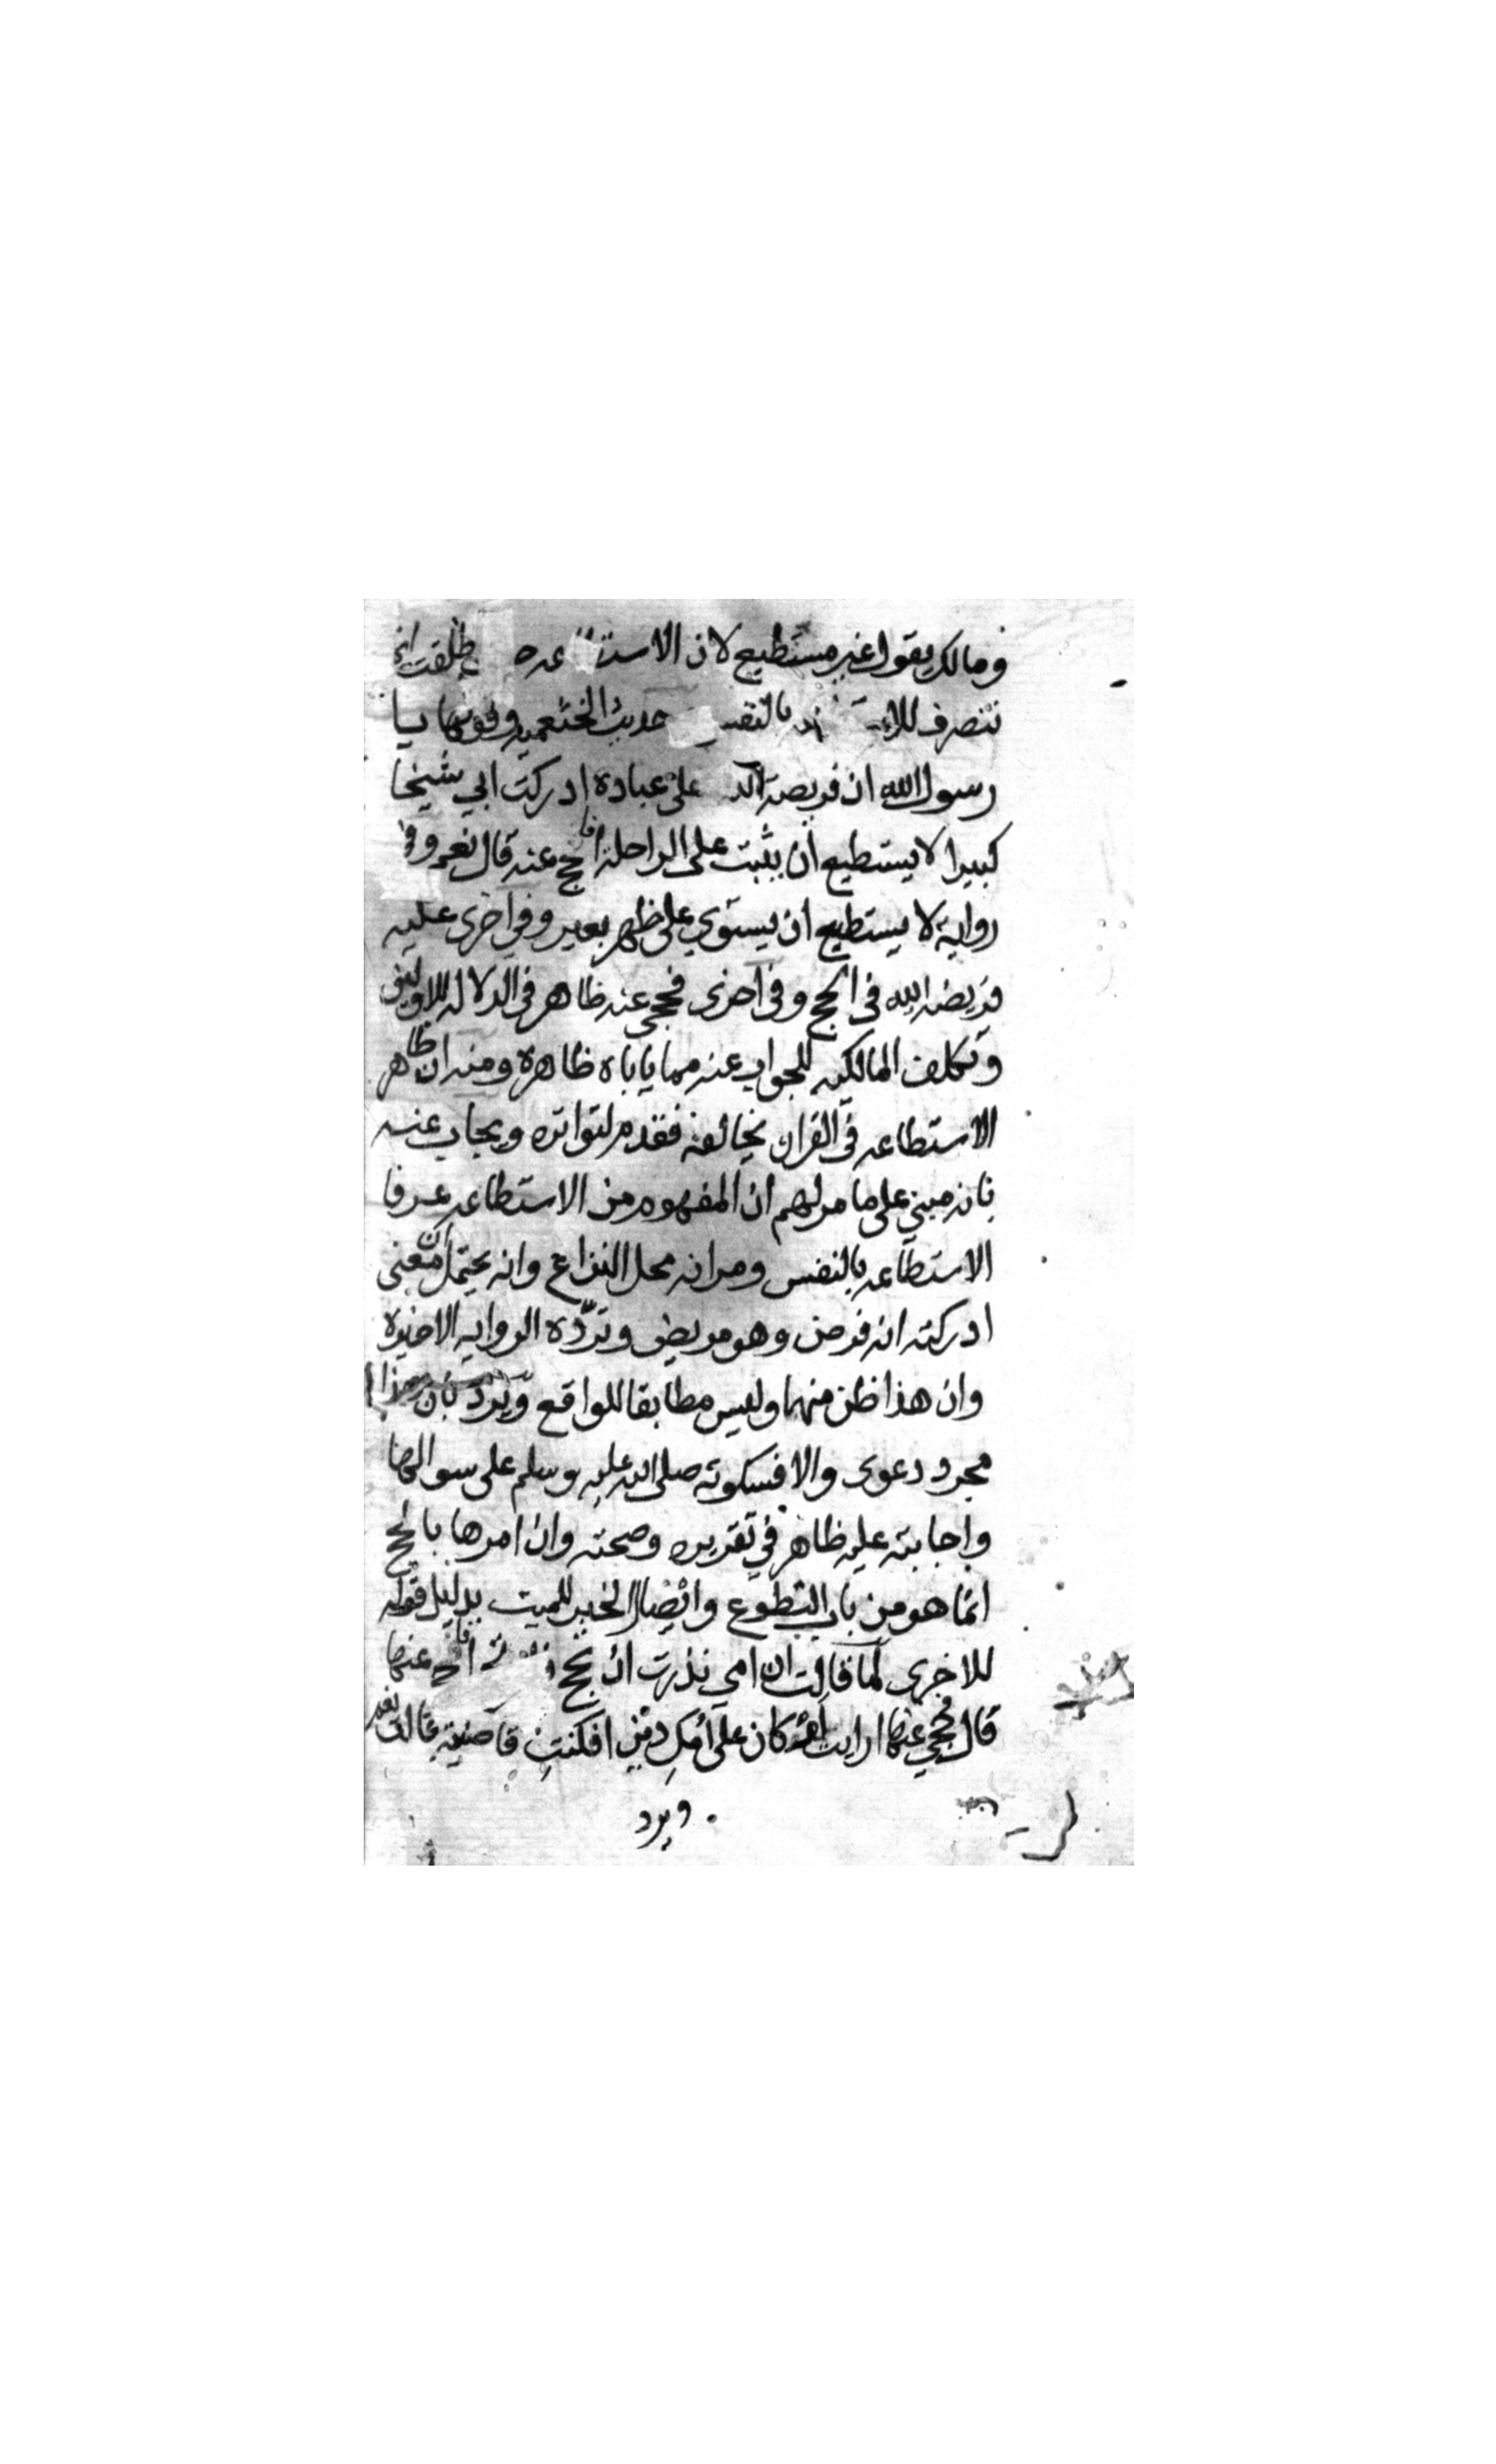 ومالك يقول غير مستطيع لان الاستطاعه طلقت انما
تنصرف للاستـ بالنفس حديث الخثعميه وقولها يا
رسول الله ان فريضة الله على عباده ادركت ابي شيخا
كبيرا لا يستطيع ان يثبت على الراحلة افاحج عنه قال نعم وفي
رواية لا يستطيع ان يستوي على ظهر بعير وفي اخرى عليه
فريضة الله في الحج وفي اخرى فحجي عنه ظاهر في الدلاله للاولين
وتكلف المالكيه للجواب عنه مما ياباه ظاهره ومنه ان ظاهر
الاستطاعه في القران يخالفه فقدم لتواتره ويجاب عنه
بانه مبني على ما مر لهم ان المفهوم من الاستطاعه عرفا
الاستطاعه بالنفس ومر انه محل النزاع وانه يحتمل ان معنى
ادركته انه فرض وهو مريض وتردّه الروايه الاخيره
وان هذا ظن منها وليس مطابقا للواقع ويرد بان هذا
مجرد دعوى والا فسكوته صلى الله عليه وسلم على سوالها
واجابته عليه ظاهر في تقريره وصحته وان امرها بالحج
انما هو من باب التطوع وايصال الخير للميت بدليل قوله
للاخرى لما قالت ان امي نذرت ان تحج افاحج عنها
قال فحجي عنها ارايت لو كان على امكِ دين اكنتِ قاضيته قالت نعم
ويرد